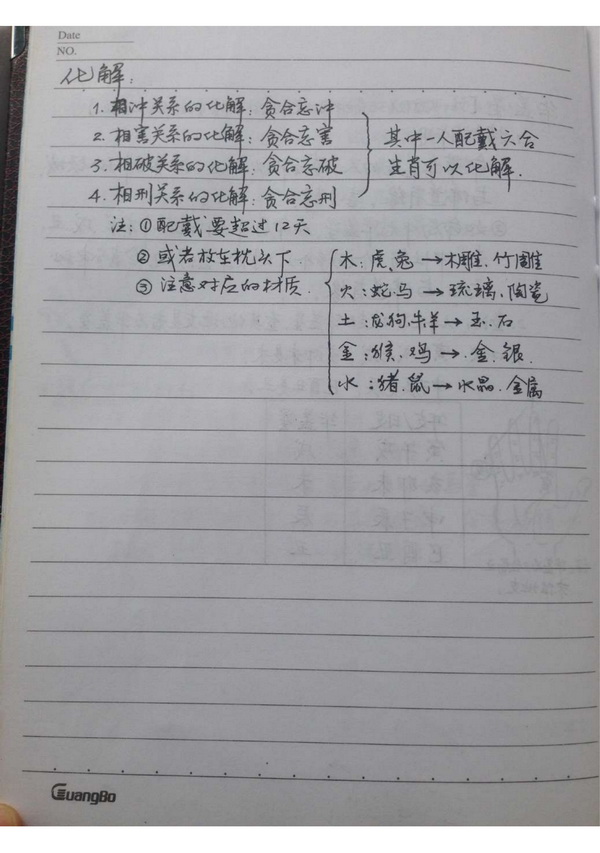 Date
NO.
化解:
1. 相冲关系的化解: 贪合忘冲
2. 相害关系的化解: 贪合忘害
3. 相破关系的化解: 贪合忘破
4. 相刑关系的化解: 贪合忘刑
其中一人配戴六合
生肖可以化解.
注: ①配戴要超过12天
②或者放在枕头下
③注意对应的材质.
木: 虎、兔→木雕. 竹雕
火: 蛇. 马→琉璃. 陶瓷
土: 龙狗. 牛羊→玉. 石
金: 猴. 鸡→金. 银.
水: 猪. 鼠→水晶. 金属
GuangBo